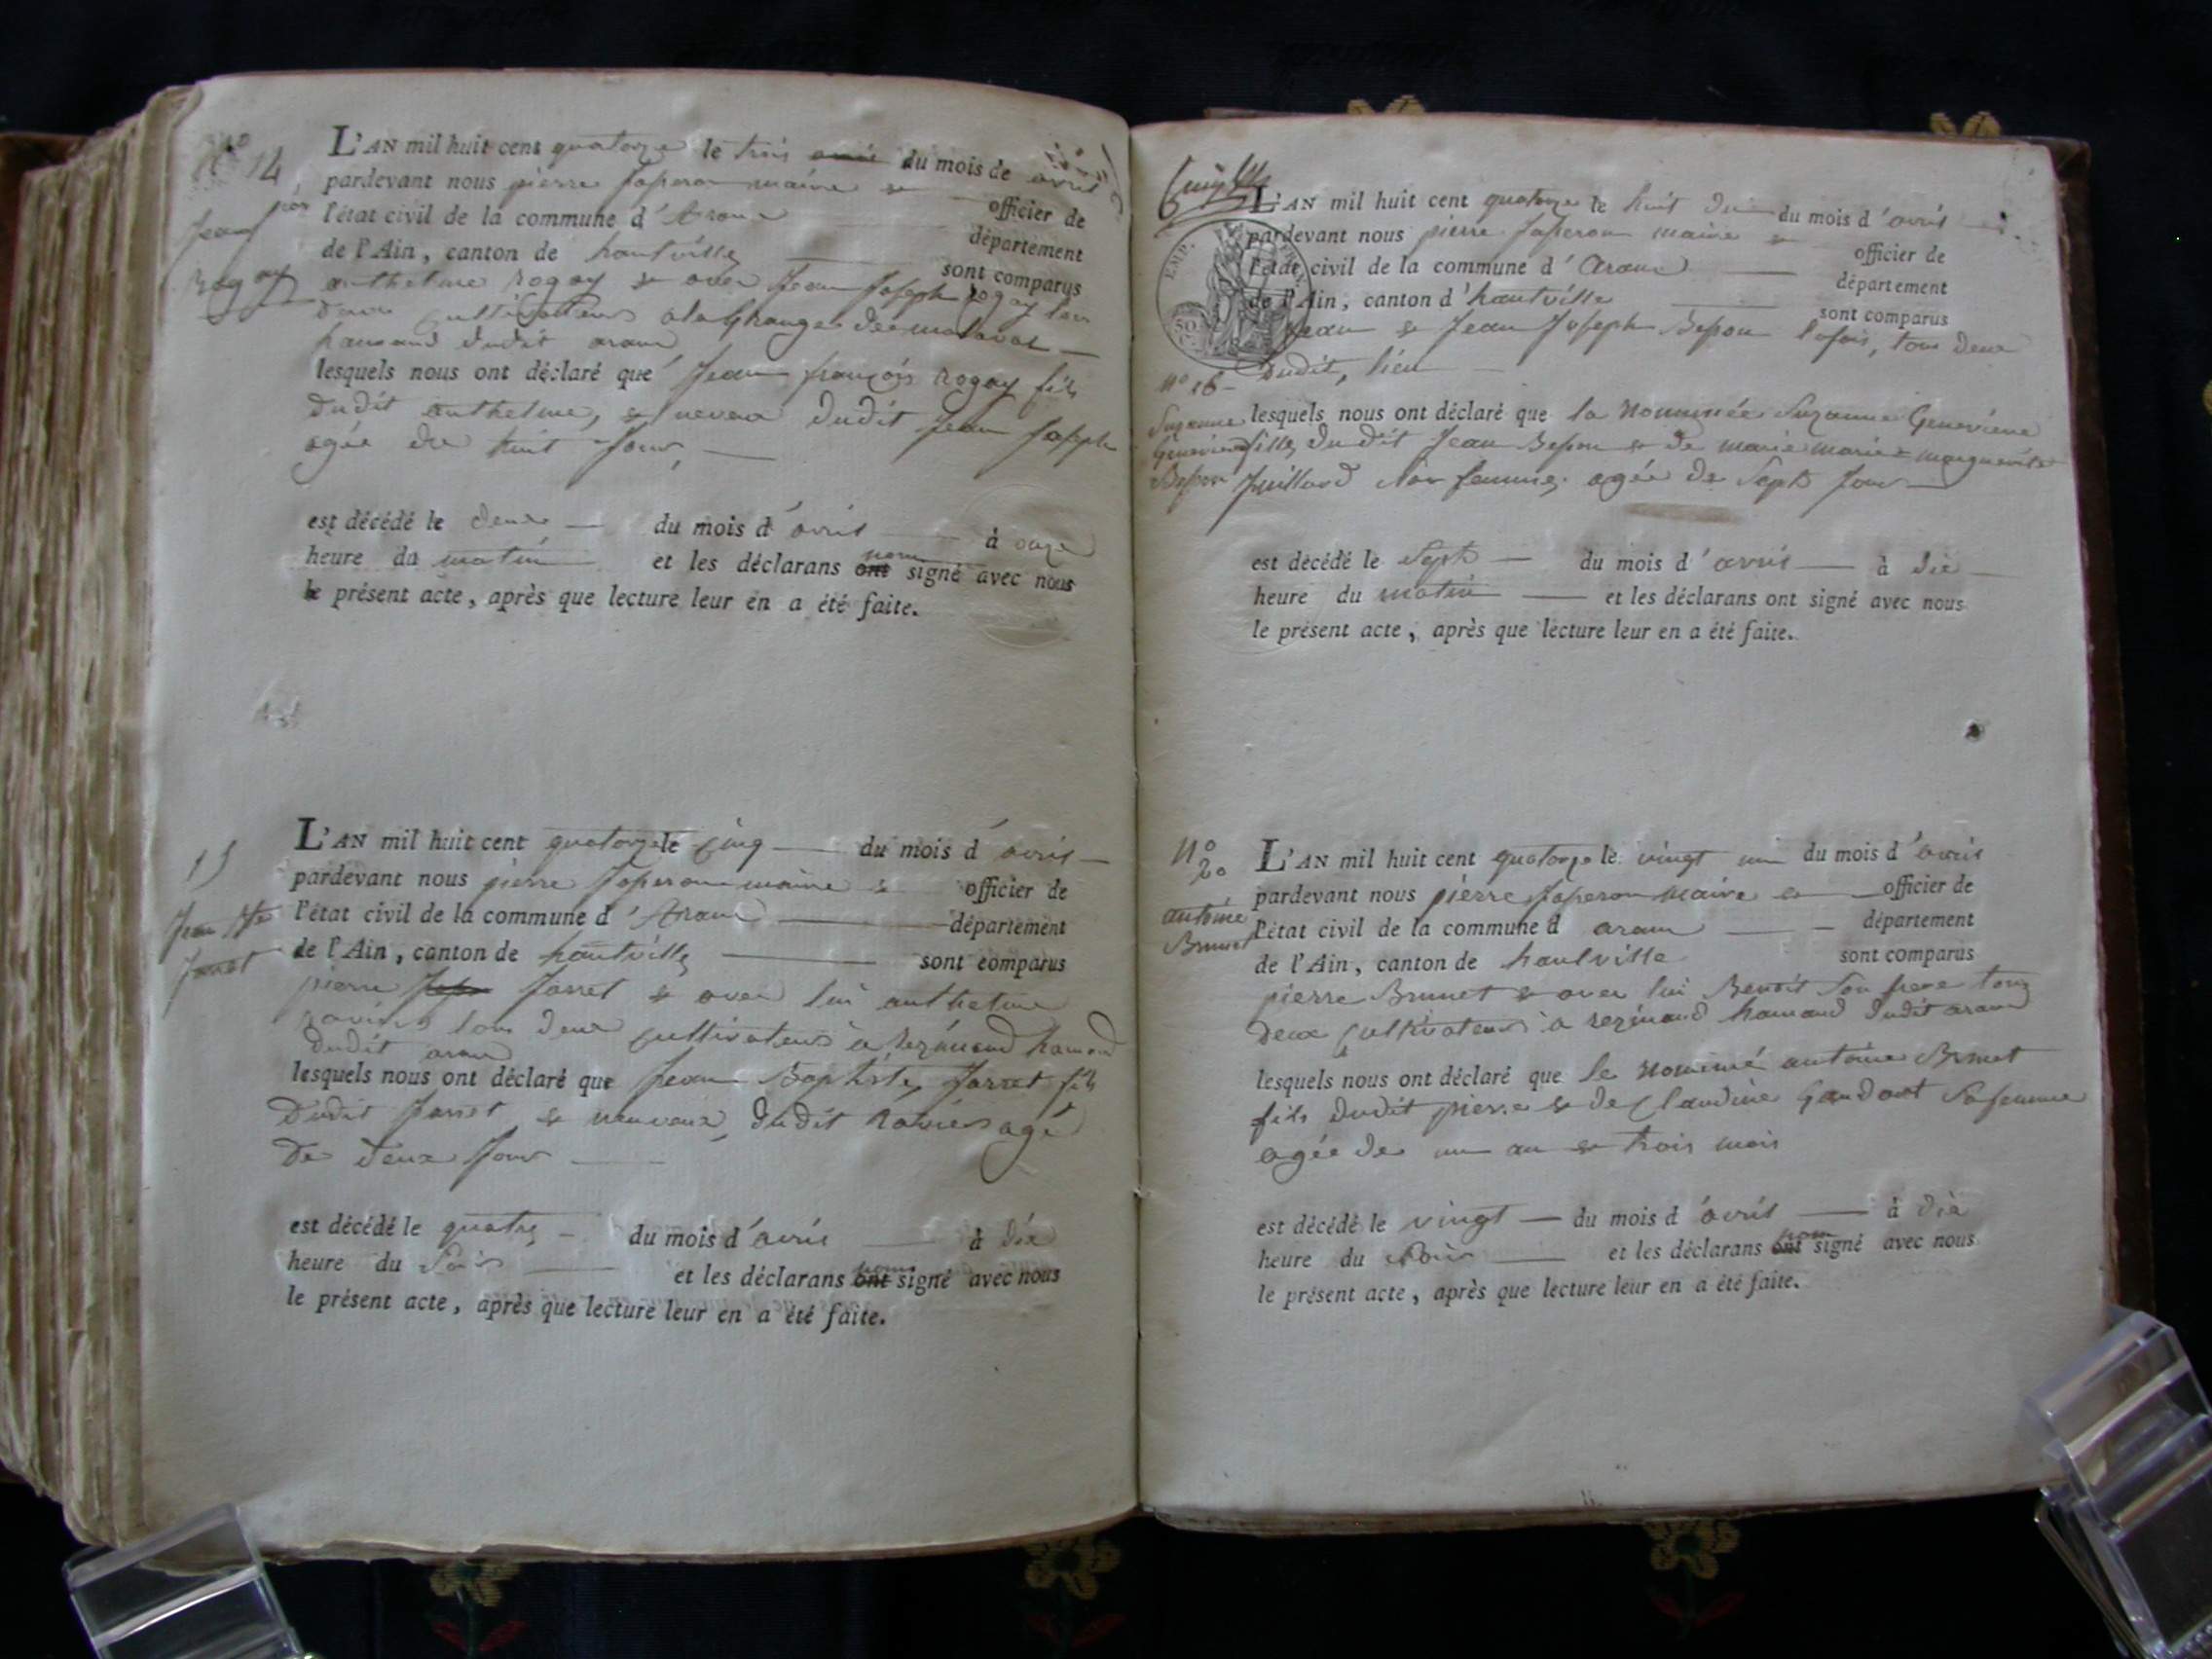 N° 14
Jean
Rogay
L'AN mil huit cent quatorze le trois du mois de avril
pardevant nous pierre Japeron maire & officier de
l'état civil de la commune d'Aranc département
de l'Ain, canton de hautville sont comparus
anthelme Rogay & avec Jean Joseph Rogay tous
deux cultivateurs a la Grange de
hamaud dudit aranc
lesquels nous ont déclaré que Jean françois Rogay fils
dudit anthelme, & neveux dudit Jean Joseph
agée de huit Jours
est décédé le deux du mois d'avril à onze
heure du matin et les déclarans ont non signé avec nous
le présent acte, après que lecture leur en a été faite.
15
Jean Bte
Jarret
L'AN mil huit cent quatorze le cinq du mois d'avril
pardevant nous pierre Japeron maire & officier de
l'état civil de la commune d'Aranc département
de l'Ain, canton de hautville sont comparus
pierre Jarret & avec lui anthelme
tous deux cultivateurs à Rezinand hamaud
dudit aranc
lesquels nous ont déclaré que Jean Baptiste Jarret fils
dudit Jarret & neuveux dudit agé
de deux Jours
est décédé le quatre du mois d'avril à dix
heure du Soir et les déclarans ont non signé avec nous
le présent acte, après que lecture leur en a été faite.
EMP.
50 C.
L'AN mil huit cent quatorze le huit du mois d'avril
pardevant nous pierre Japeron maire & officier de
l'état civil de la commune d'Aranc département
de l'Ain, canton d'hautville sont comparus
Jean & Jean Joseph Besson tous deux
dudit lieu
N° 16
Suzanne
Genevieve
Besson
lesquels nous ont déclaré que la nommée Suzanne Genevieve
fille dudit Jean Besson & de marie marie marguerite
Juillard Son femme, agée de Sept Jours
est décédé le Sept du mois d'avril à dix
heure du matin et les déclarans ont signé avec nous
le présent acte, après que lecture leur en a été faite.
N°
20
antoine
Brunet
L'AN mil huit cent quatorze le vingt un du mois d'avril
pardevant nous pierre Japeron maire & officier de
l'état civil de la commune d aranc département
de l'Ain, canton de hautville sont comparus
pierre Brunet & avec lui Benoit Son frere tous
deux cultivateurs a rezinand hamaud dudit aranc
lesquels nous ont déclaré que le nommé antoine Brunet
fils dudit pierre & de Claudine Sa femme
agée de un an & trois mois
est décédé le vingt du mois d'avril à dix
heure du Soir et les déclarans ont non signé avec nous
le présent acte, après que lecture leur en a été faite.